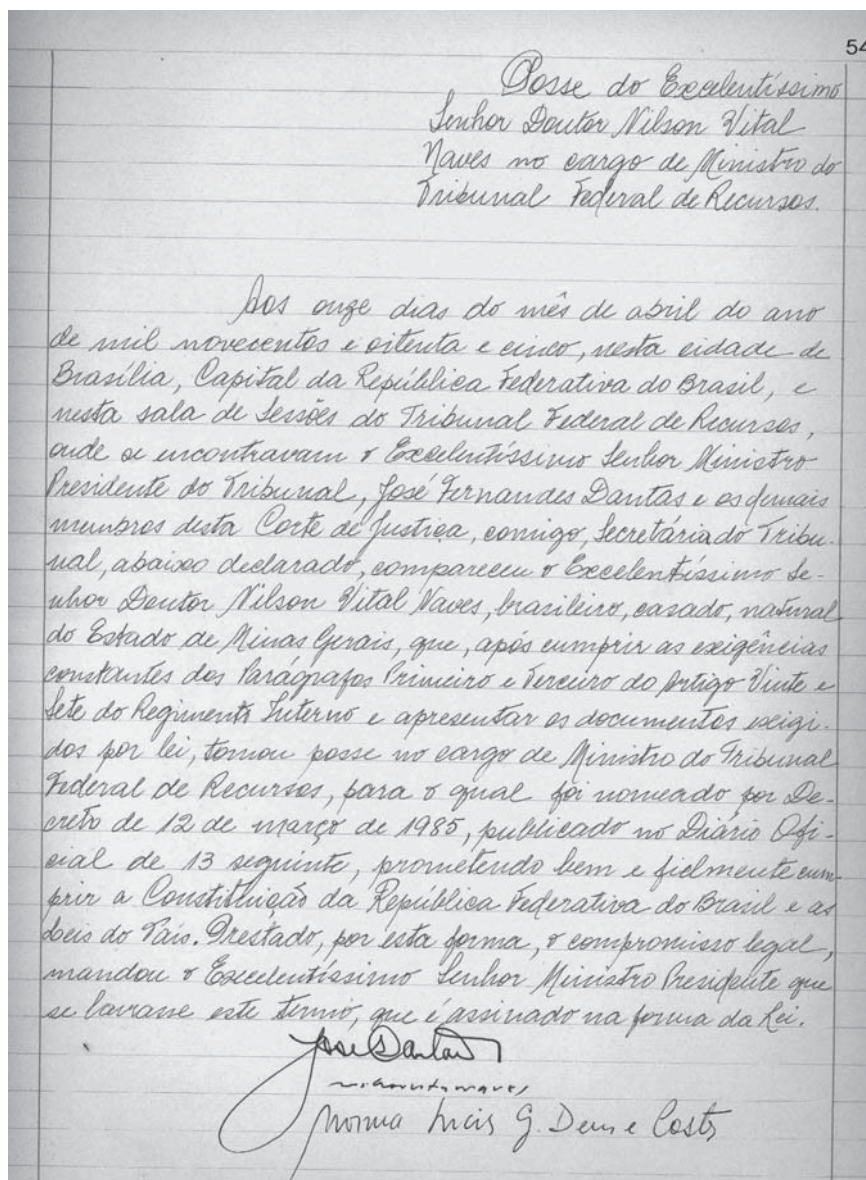 54
Posse do Excelentíssimo
Senhor Doutor Nilson Vital
Naves no cargo de Ministro do
Tribunal Federal de Recursos.
Aos onze dias do mês de abril do ano
de mil novecentos e oitenta e cinco, nesta cidade de
Brasília, Capital da República Federativa do Brasil, e
nesta sala de Sessões do Tribunal Federal de Recursos,
onde se encontravam o Excelentíssimo Senhor Ministro
Presidente do Tribunal, José Fernandes Dantas e os demais
membros desta Corte de Justiça, comigo, Secretária do Tribu-
nal, abaixo declarado, compareceu o Excelentíssimo Se-
nhor Doutor Nilson Vital Naves, brasileiro, casado, natural
do Estado de Minas Gerais, que, após cumprir as exigências
constantes dos Parágrafos Primeiro e Terceiro do Artigo Vinte e
Sete do Regimento Interno e apresentar os documentos exigi-
dos por lei, tomou posse no cargo de Ministro do Tribunal
Federal de Recursos, para o qual foi nomeado por De-
creto de 12 de março de 1985, publicado no Diário Ofi-
cial de 13 seguinte, prometendo bem e fielmente cum-
prir a Constituição da República Federativa do Brasil e as
Leis do País. Prestado, por esta forma, o compromisso legal,
mandou o Excelentíssimo Senhor Ministro Presidente que
se lavrasse este termo, que é assinado na forma da Lei.
José Dantas